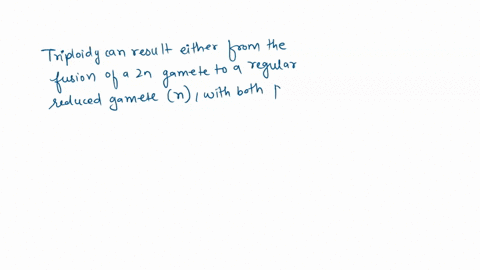 Triploidy can result either from the
fusion of a 2n gamete to a regular
reduced gamete (n), with both